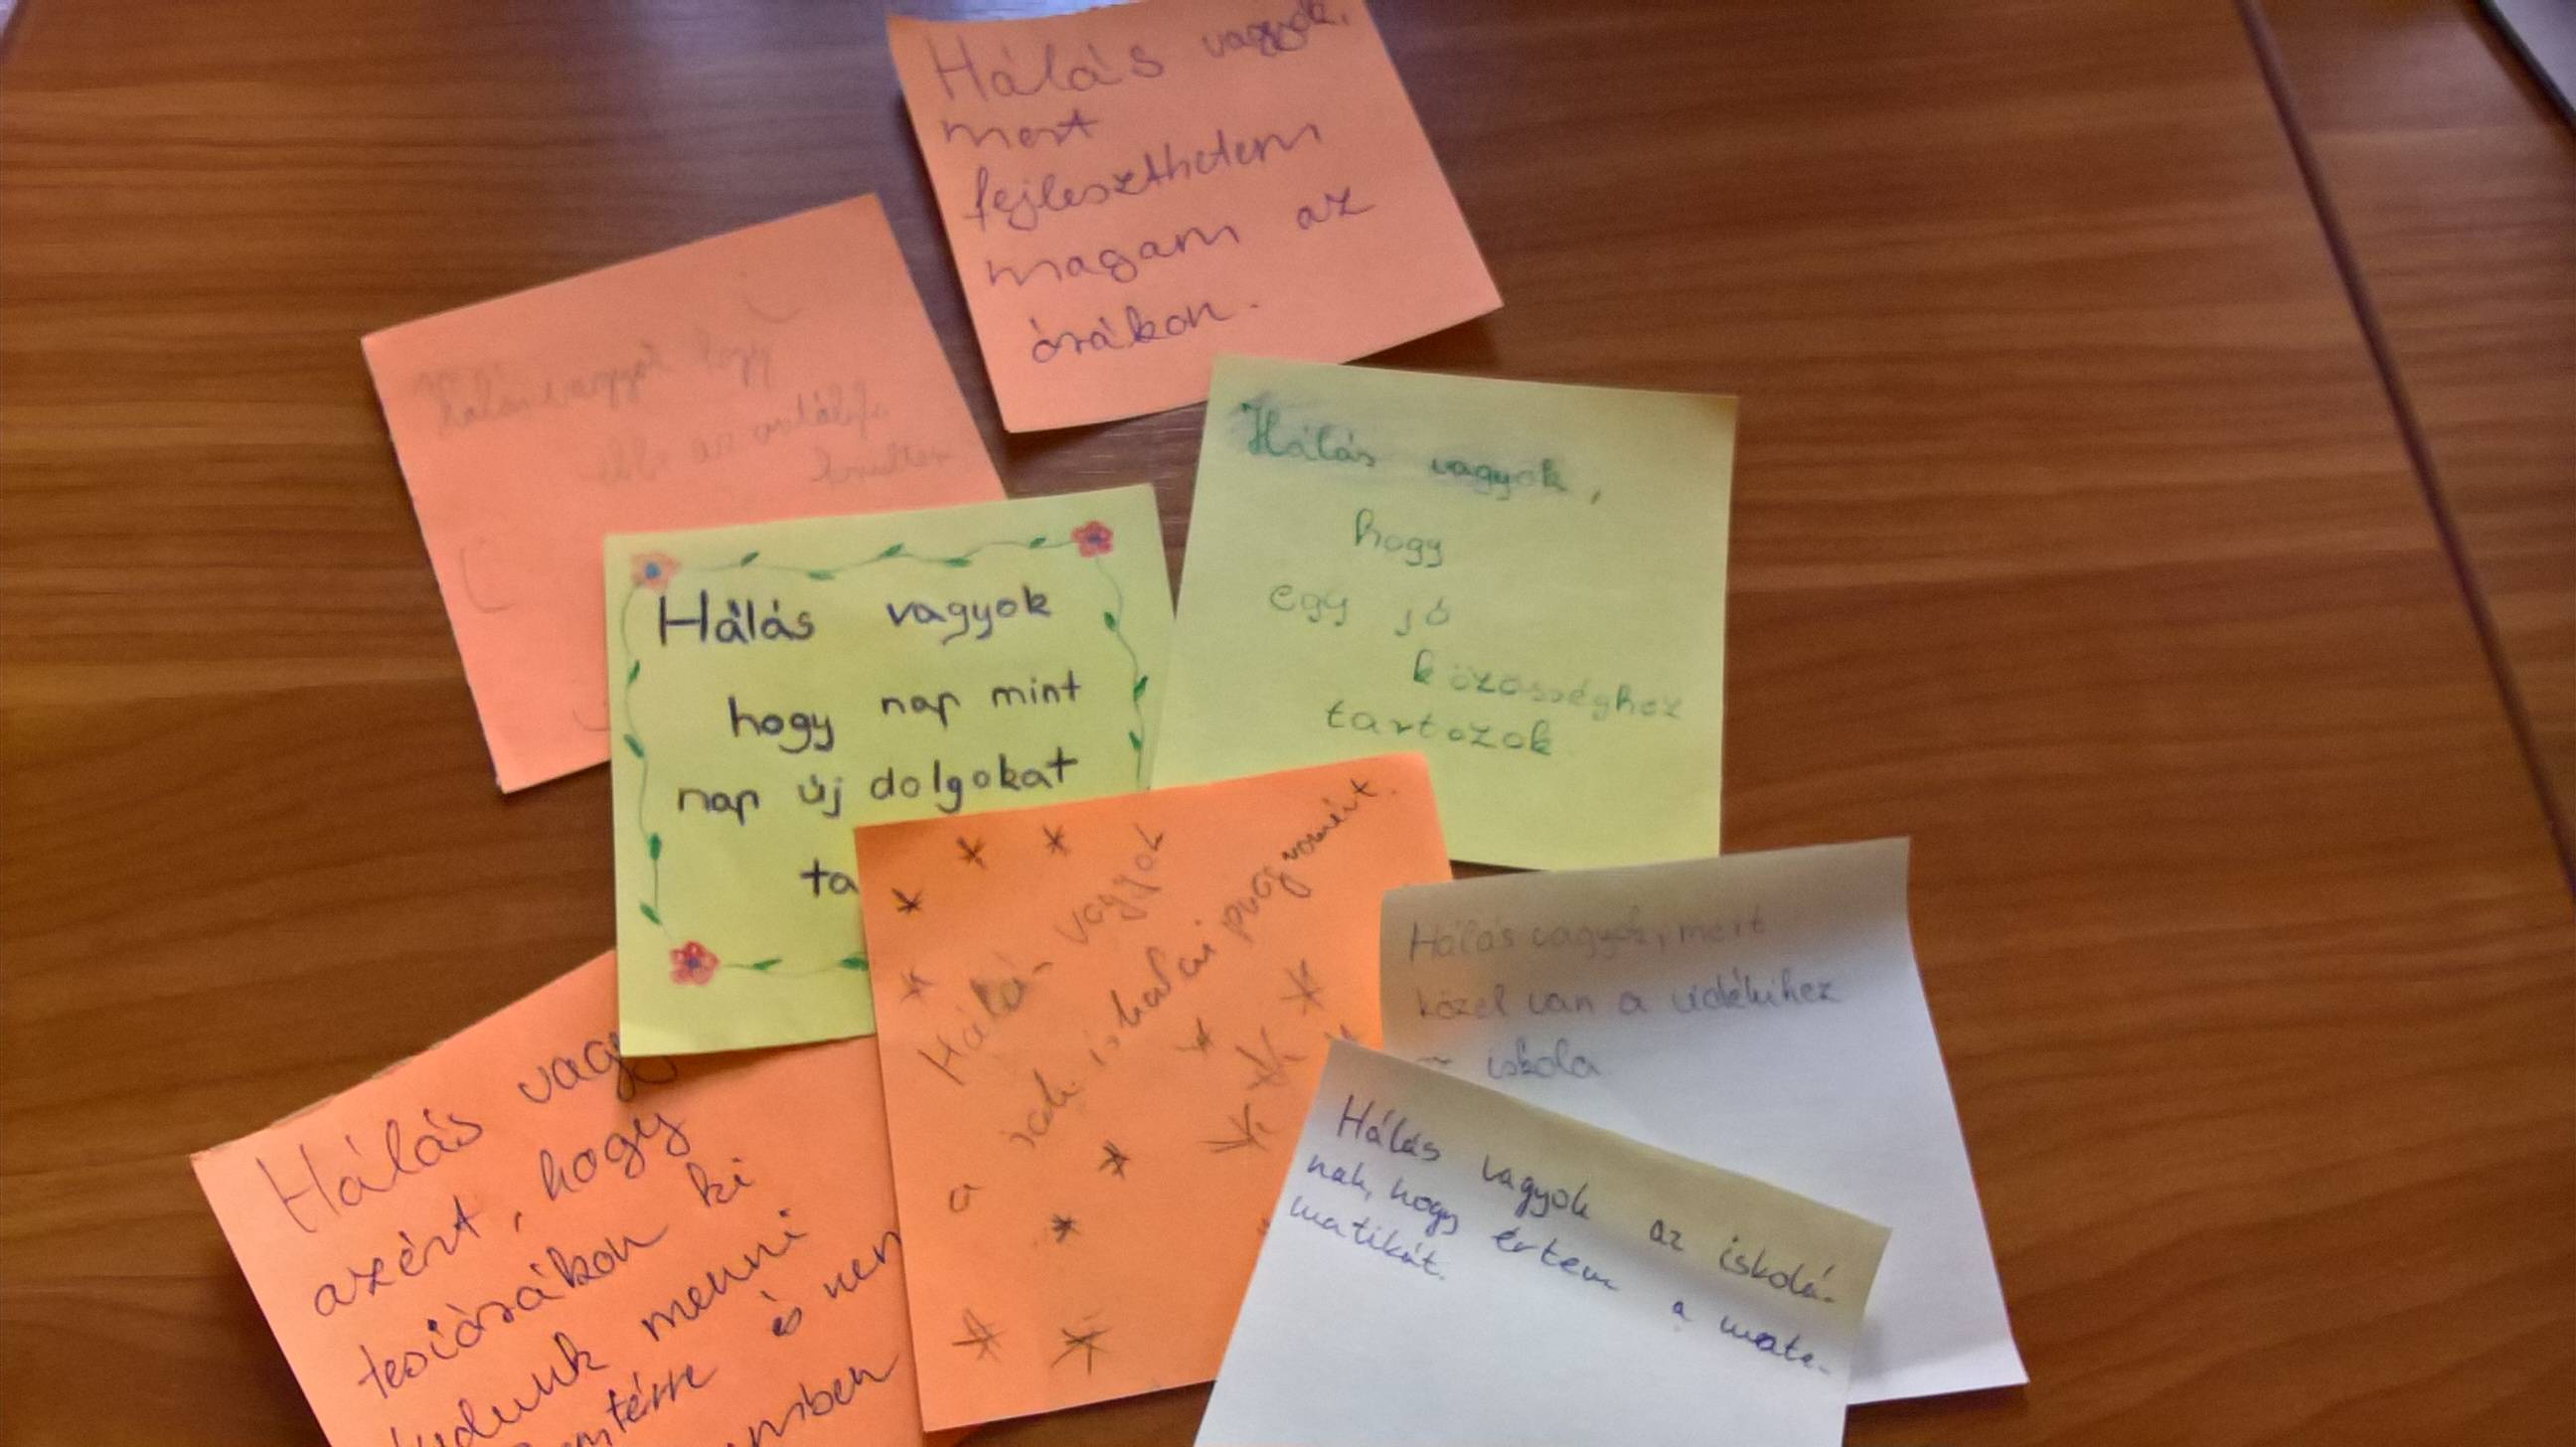 Hálás vagyok,
mert
fejleszthetem
magam az
órákon.
hogy
az
Hálás vagyok,
hogy
egy jó
közösséghez
tartozok.
Hálás vagyok
hogy nap mint
nap új dolgokat
ta
Hálás vagyok
a sok iskolai programért.
Hálás vagyok, mert
közel van a vidékihez
iskola
Hálás vagy
azért, hogy
tesiórákon ki
tudunk menni
és nem
Hálás vagyok az iskolá-
nak, hogy értem a mate-
matikát.